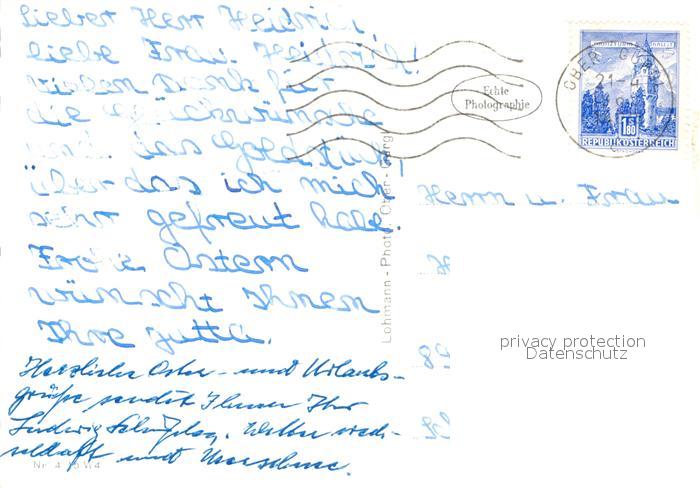 Lieber Herr Heidrich,
liebe Frau Heidrich!
vielen Dank für
die Glückwünsche
und das Goldstück,
über das ich mich
sehr gefreut habe.
Frohe Ostern
wünscht Ihnen
Ihre Jutta.
Herzliche Oster- und Urlaubs-
grüße sendet Ihnen Ihr
Ludwig
und
Echte
Photographie
OBER GURGL
21. 4.
S 1.80
REPUBLIK ÖSTERREICH
Lohmann - Photo, Ober-Gurgl
Herrn u. Frau
H
89
privacy protection
Datenschutz
Nr. 4